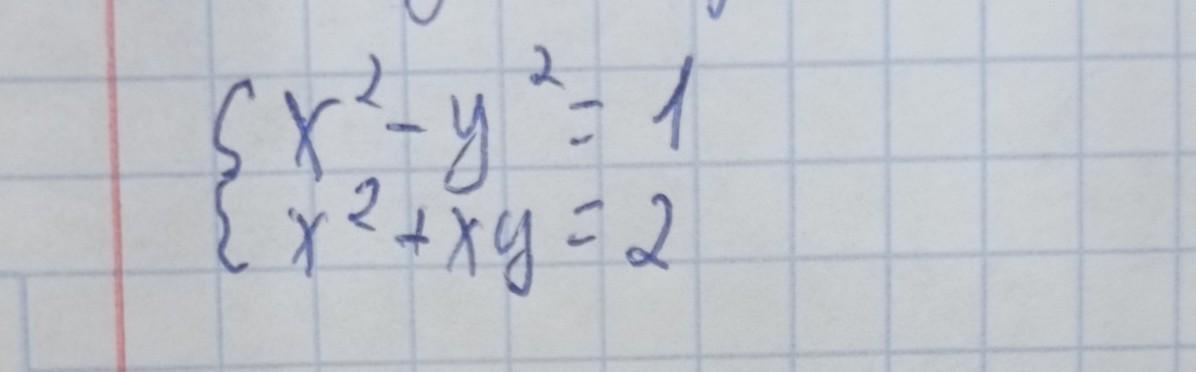 x² - y² = 1
x² + xy = 2